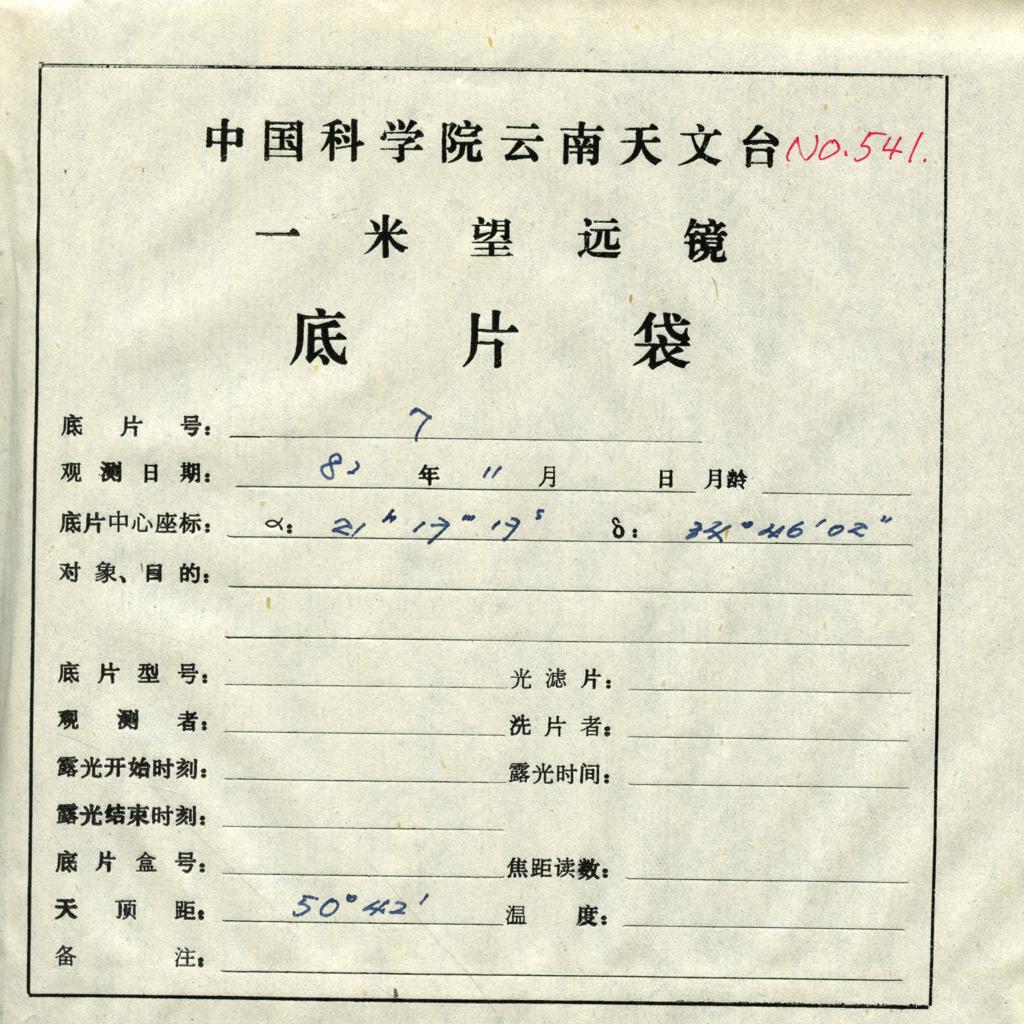 中国科学院云南天文台 NO.541.
一米望远镜
底片袋
底片号: 7
观测日期: 82 年 11 月 日 月龄
底片中心座标: α: 21h 17m 17s δ: 34° 46′ 02″
对象、目的:
底片型号: 光滤片:
观测者: 洗片者:
露光开始时刻: 露光时间:
露光结束时刻:
底片盒号: 焦距读数:
天顶距: 50° 42′ 温度:
备注: